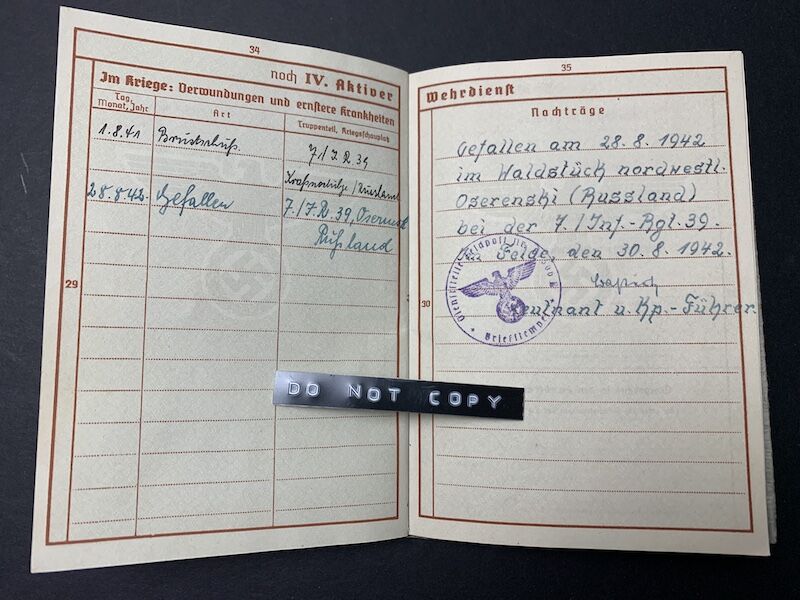 34
noch IV. Aktiver
Im Kriege: Verwundungen und ernstere Krankheiten
Tag, Monat, Jahr
Art
Truppenteil, Kriegsschauplatz
1.8.41 Brustschuß. 7./J.R 39
28.8.42. Gefallen 7./J.R. 39,
Rußland
29
35
Wehrdienst
Nachträge
Gefallen am 28.8.1942
im Waldstück nordwestl.
Oserenski (Russland)
bei der 7./Inf.-Rgl. 39.
Im Felde, den 30.8.1942.
Leutnant u. Kp.-Führer.
30
Dienststelle Feldpost
Briefstempel
DO NOT COPY